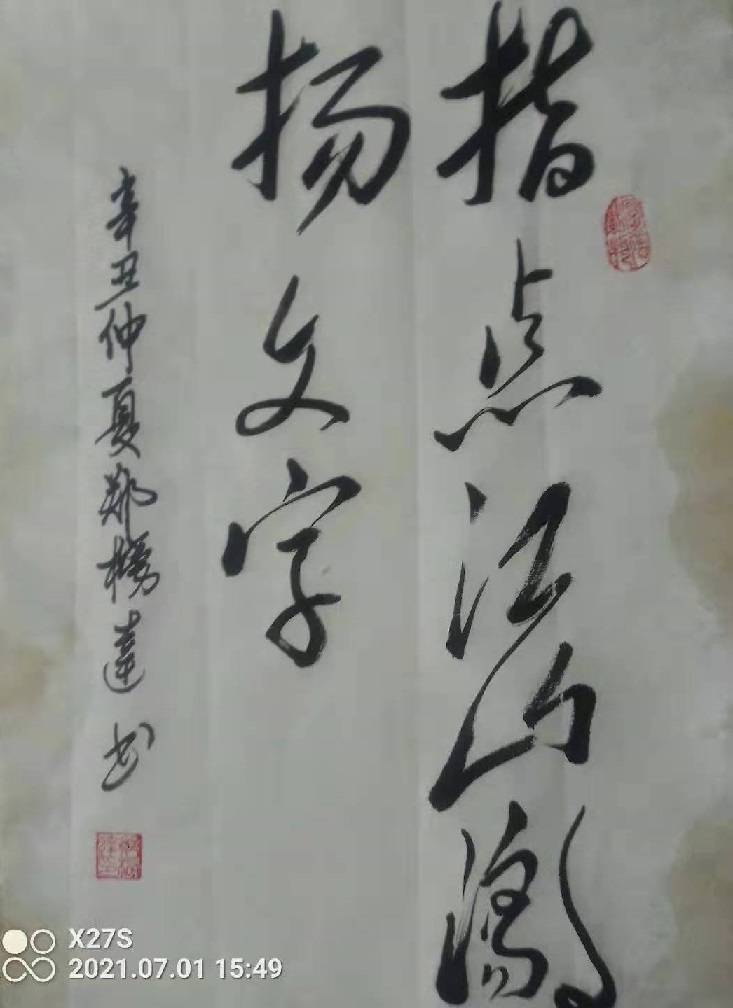 指点江山激
扬文字
辛丑仲夏郑達书
X27S
2021.07.01 15:49